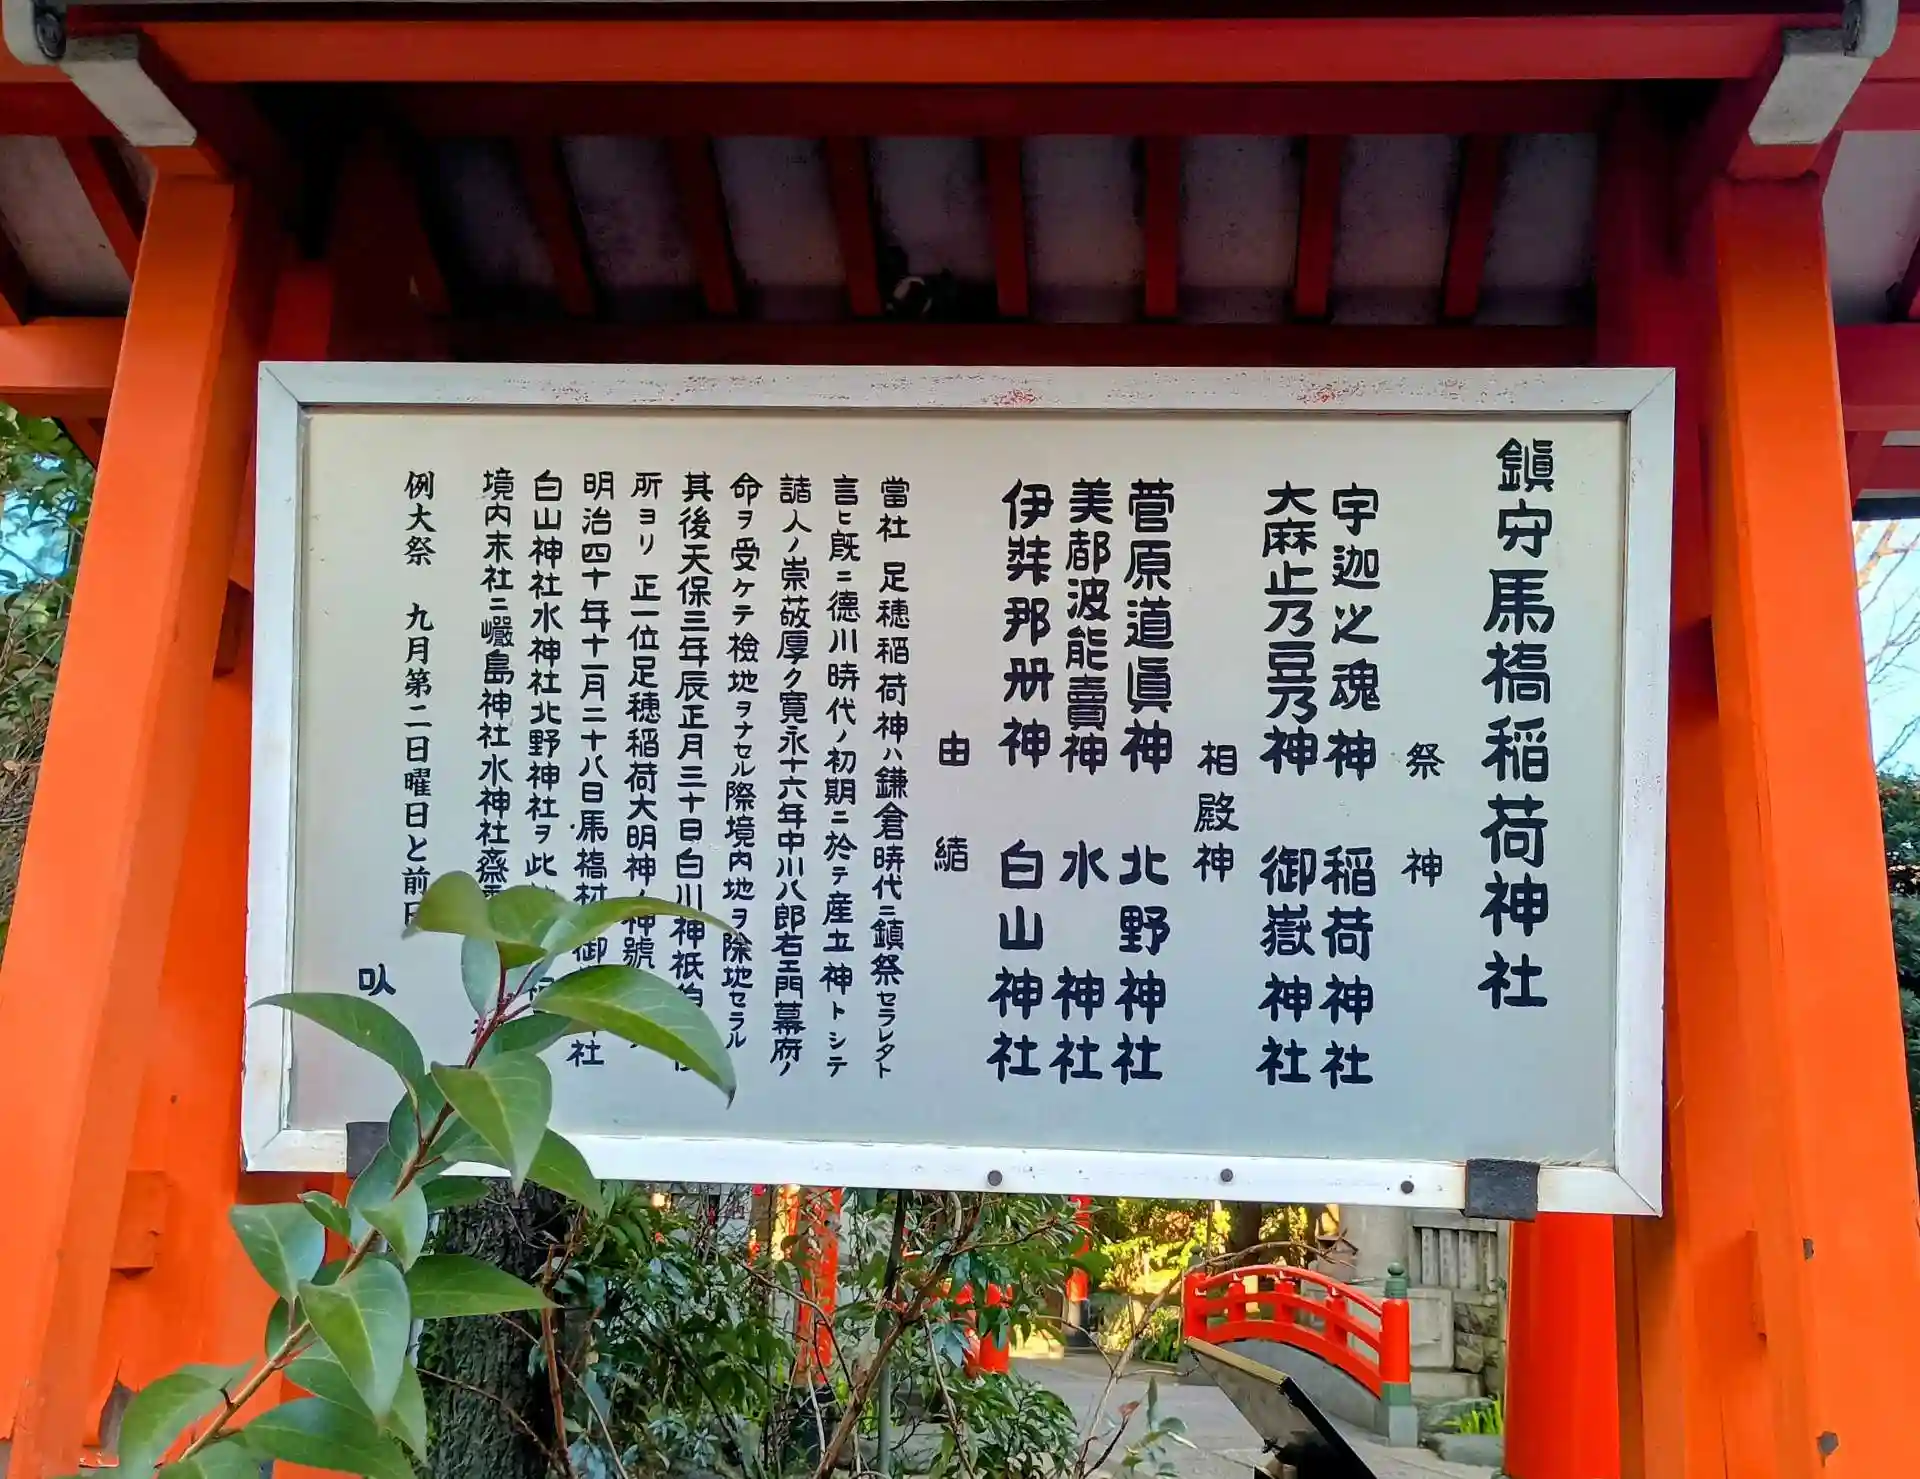 鎮守馬橋稲荷神社
祭神
宇迦之魂神 稲荷神社
大麻止乃豆乃神 御嶽神社
相殿神
菅原道眞神 北野神社
美都波能賣神 水神社
伊弉那册神 白山神社
由緒
當社 足穂稲荷神ハ鎌倉時代ニ鎮祭セラレタト
言ヒ既ニ德川時代ノ初期ニ於テ産土神トシテ
諸人ノ崇敬厚ク寛永十六年中川八郎右エ門幕府ノ
命ヲ受ケテ檢地ヲナセル際境内地ヲ除地セラル
其後天保三年辰正月三十日白川神祇伯
所ヨリ 正一位足穂稲荷大明神ノ神號
明治四十年十一月二十八日馬橋村御 社
白山神社水神社北野神社ヲ此
境内末社ニ巖島神社水神社齋
例大祭 九月第二日曜日と前日
以